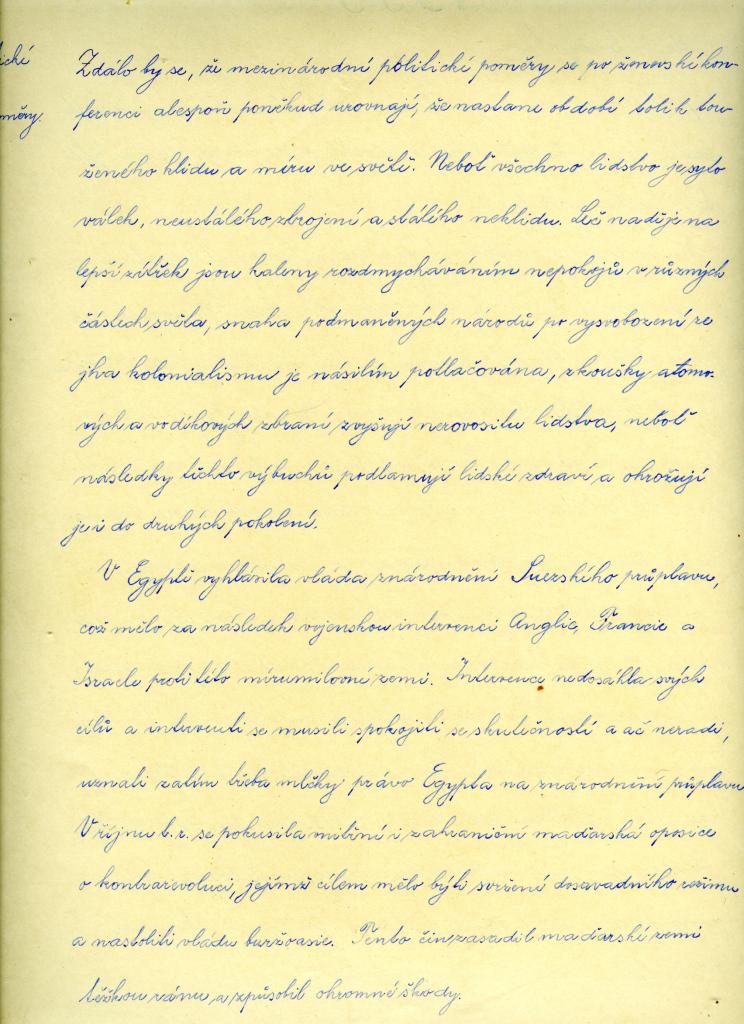 ické
měry
Zdálo by se, že mezinárodní politické poměry se po ženevské kon-
ferenci alespoň poněkud urovnají, že nastane období tolik tou-
ženého klidu a míru ve světě. Neboť všechno lidstvo je syto
válek, neustálého zbrojení a stálého neklidu. Leč naděje na
lepší zítřek jsou kaleny rozdmycháváním nepokojů v různých
částech světa, snaha podmaněných národů po vysvobození ze
jha kolonialismu je násilím potlačována, zkoušky atomo-
vých a vodíkových zbraní zvyšují nervositu lidstva, neboť
následky těchto výbuchů podlamují lidské zdraví a ohrožují
jej i do druhých pokolení.
V Egyptě vyhlásila vláda znárodnění Suezského průplavu,
což mělo za následek vojenskou intervenci Anglie, Francie a
Israele proti této mírumilovné zemi. Intervence nedosáhla svých
cílů a interventi se musili spokojiti se skutečností a ač neradi,
uznali zatím třeba mlčky právo Egypta na znárodnění průplavu
V říjnu t. r. se pokusila vnitřní i zahraniční maďarská oposice
o kontrarevoluci, jejímž cílem mělo býti svržení dosavadního režimu
a nastoliti vládu buržoasie. Tento čin zasadil maďarské zemi
těžkou ránu a způsobil ohromné škody.